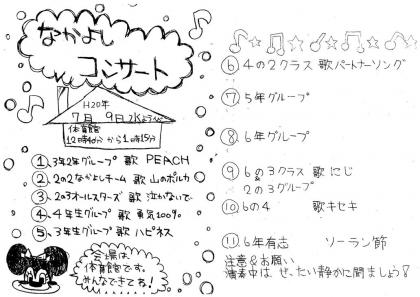 なかよし
コンサート
H20年
7月 9日 水ようび
体育館
12時40分から1時15分
①、3年2年グループ 歌 PEACH
②、2の2なかよしチーム 歌 山のポルカ
③、2の3オールスターズ 歌 泣かないで
④、4年生グループ 歌 勇気100%
⑤、3年生グループ 歌 ハピネス
会場は、
体育館です。
みんなできてね!
⑥ 4の2クラス 歌パートナーソング
⑦ 5年グループ
⑧ 6年グループ
⑨ 6の3クラス 歌 にじ
2の3グループ
⑩ 6の4 歌 キセキ
⑪ 6年有志 ソーラン節
注意&お願い
演奏中は、ぜったい静かに聞きましょう!